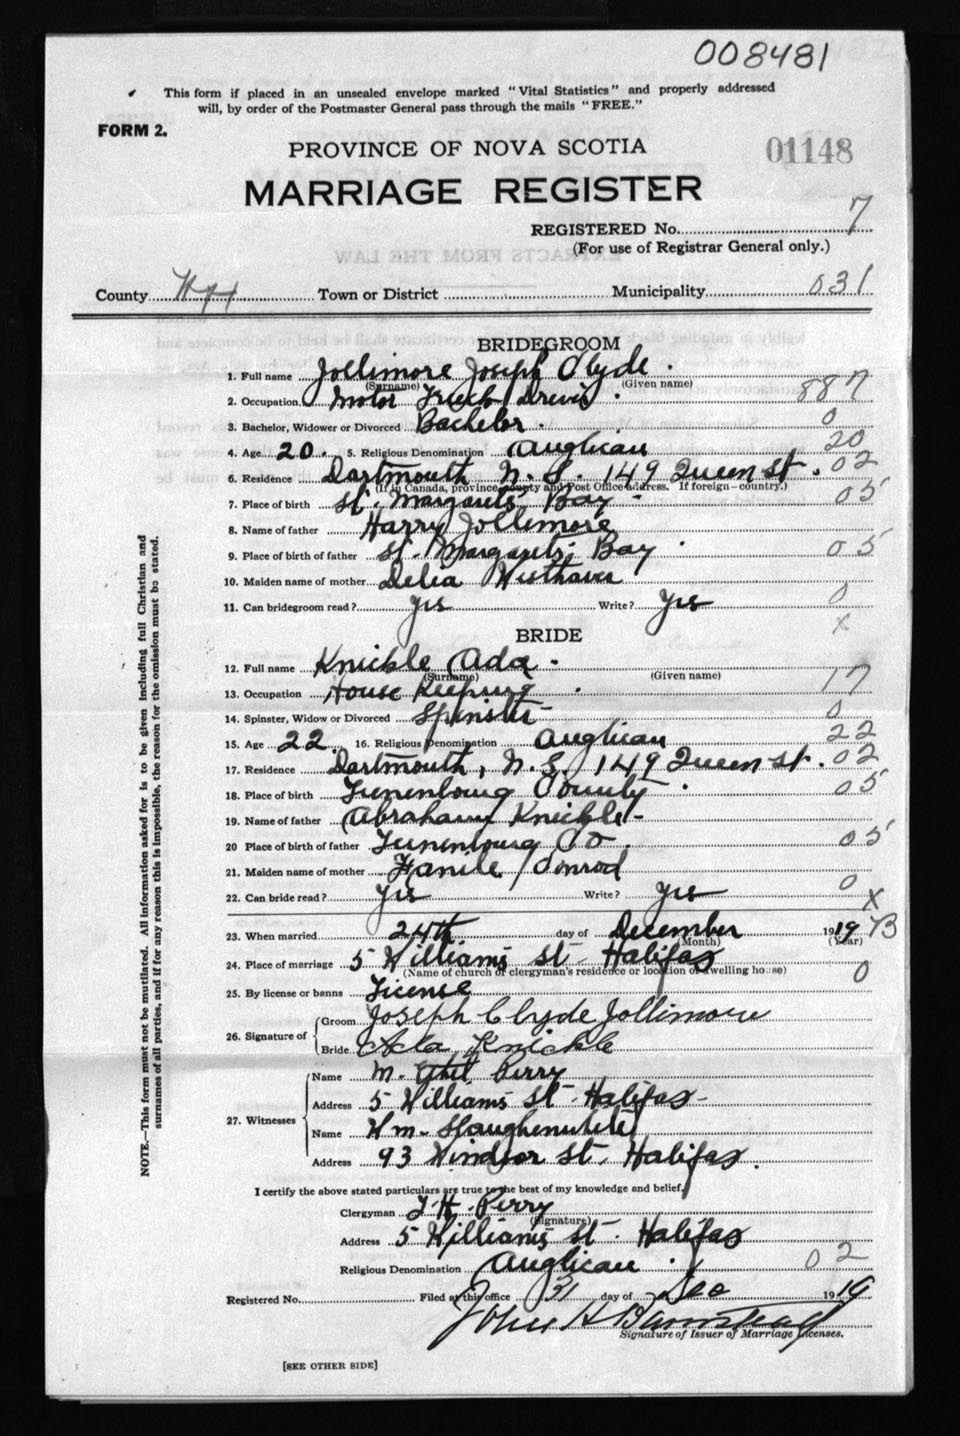 008481
This form if placed in an unsealed envelope marked "Vital Statistics" and properly addressed
will, by order of the Postmaster General pass through the mails "FREE."
FORM 2.
PROVINCE OF NOVA SCOTIA
01148
MARRIAGE REGISTER
REGISTERED No. 7
(For use of Registrar General only.)
County Hfx Town or District Municipality 031
BRIDEGROOM
1. Full name Jollimore Joseph Clyde
(Surname) (Given name)
2. Occupation Motor Truck Driver 887
3. Bachelor, Widower or Divorced Bachelor 0
4. Age 20 5. Religious Denomination Anglican 20
6. Residence Dartmouth N.S. 149 Queen St. 02
(If in Canada, province, county and Post Office address. If foreign—country.)
7. Place of birth St. Margarets Bay 05
8. Name of father Harry Jollimore
9. Place of birth of father St. Margarets Bay 05
10. Maiden name of mother Delia Westhaver
11. Can bridegroom read? Yes Write? Yes 0
x
BRIDE
12. Full name Knickle Ada
(Surname) (Given name)
13. Occupation House Keeping 17
14. Spinster, Widow or Divorced Spinster 0
15. Age 22 16. Religious Denomination Anglican 22
17. Residence Dartmouth, N.S. 149 Queen St. 02
18. Place of birth Lunenburg County 05
19. Name of father Abraham Knickle
20 Place of birth of father Lunenburg Co. 05
21. Maiden name of mother Conrod
22. Can bride read? Yes Write? Yes 0
x
23. When married 24th day of December 1919 73
(Month) (Year)
24. Place of marriage 5 Williams St Halifax 0
(Name of church or clergyman's residence or location of dwelling house)
25. By license or banns License
26. Signature of Groom Joseph Clyde Jollimore
Bride Ada Knickle
27. Witnesses
Name M. Ethel Perry
Address 5 Williams St. Halifax
Name Wm.
Address 93 Windsor St. Halifax.
I certify the above stated particulars are true to the best of my knowledge and belief.
Clergyman Perry
(Signature)
Address 5 Williams St. Halifax
Religious Denomination Anglican 02
Registered No. Filed at this office 31 day of Dec 1919
John H
Signature of Issuer of Marriage Licenses.
[SEE OTHER SIDE]
NOTE.—This form must not be mutilated. All information asked for is to be given including full Christian and
surnames of all parties, and if for any reason this is impossible, the reason for the omission must be stated.